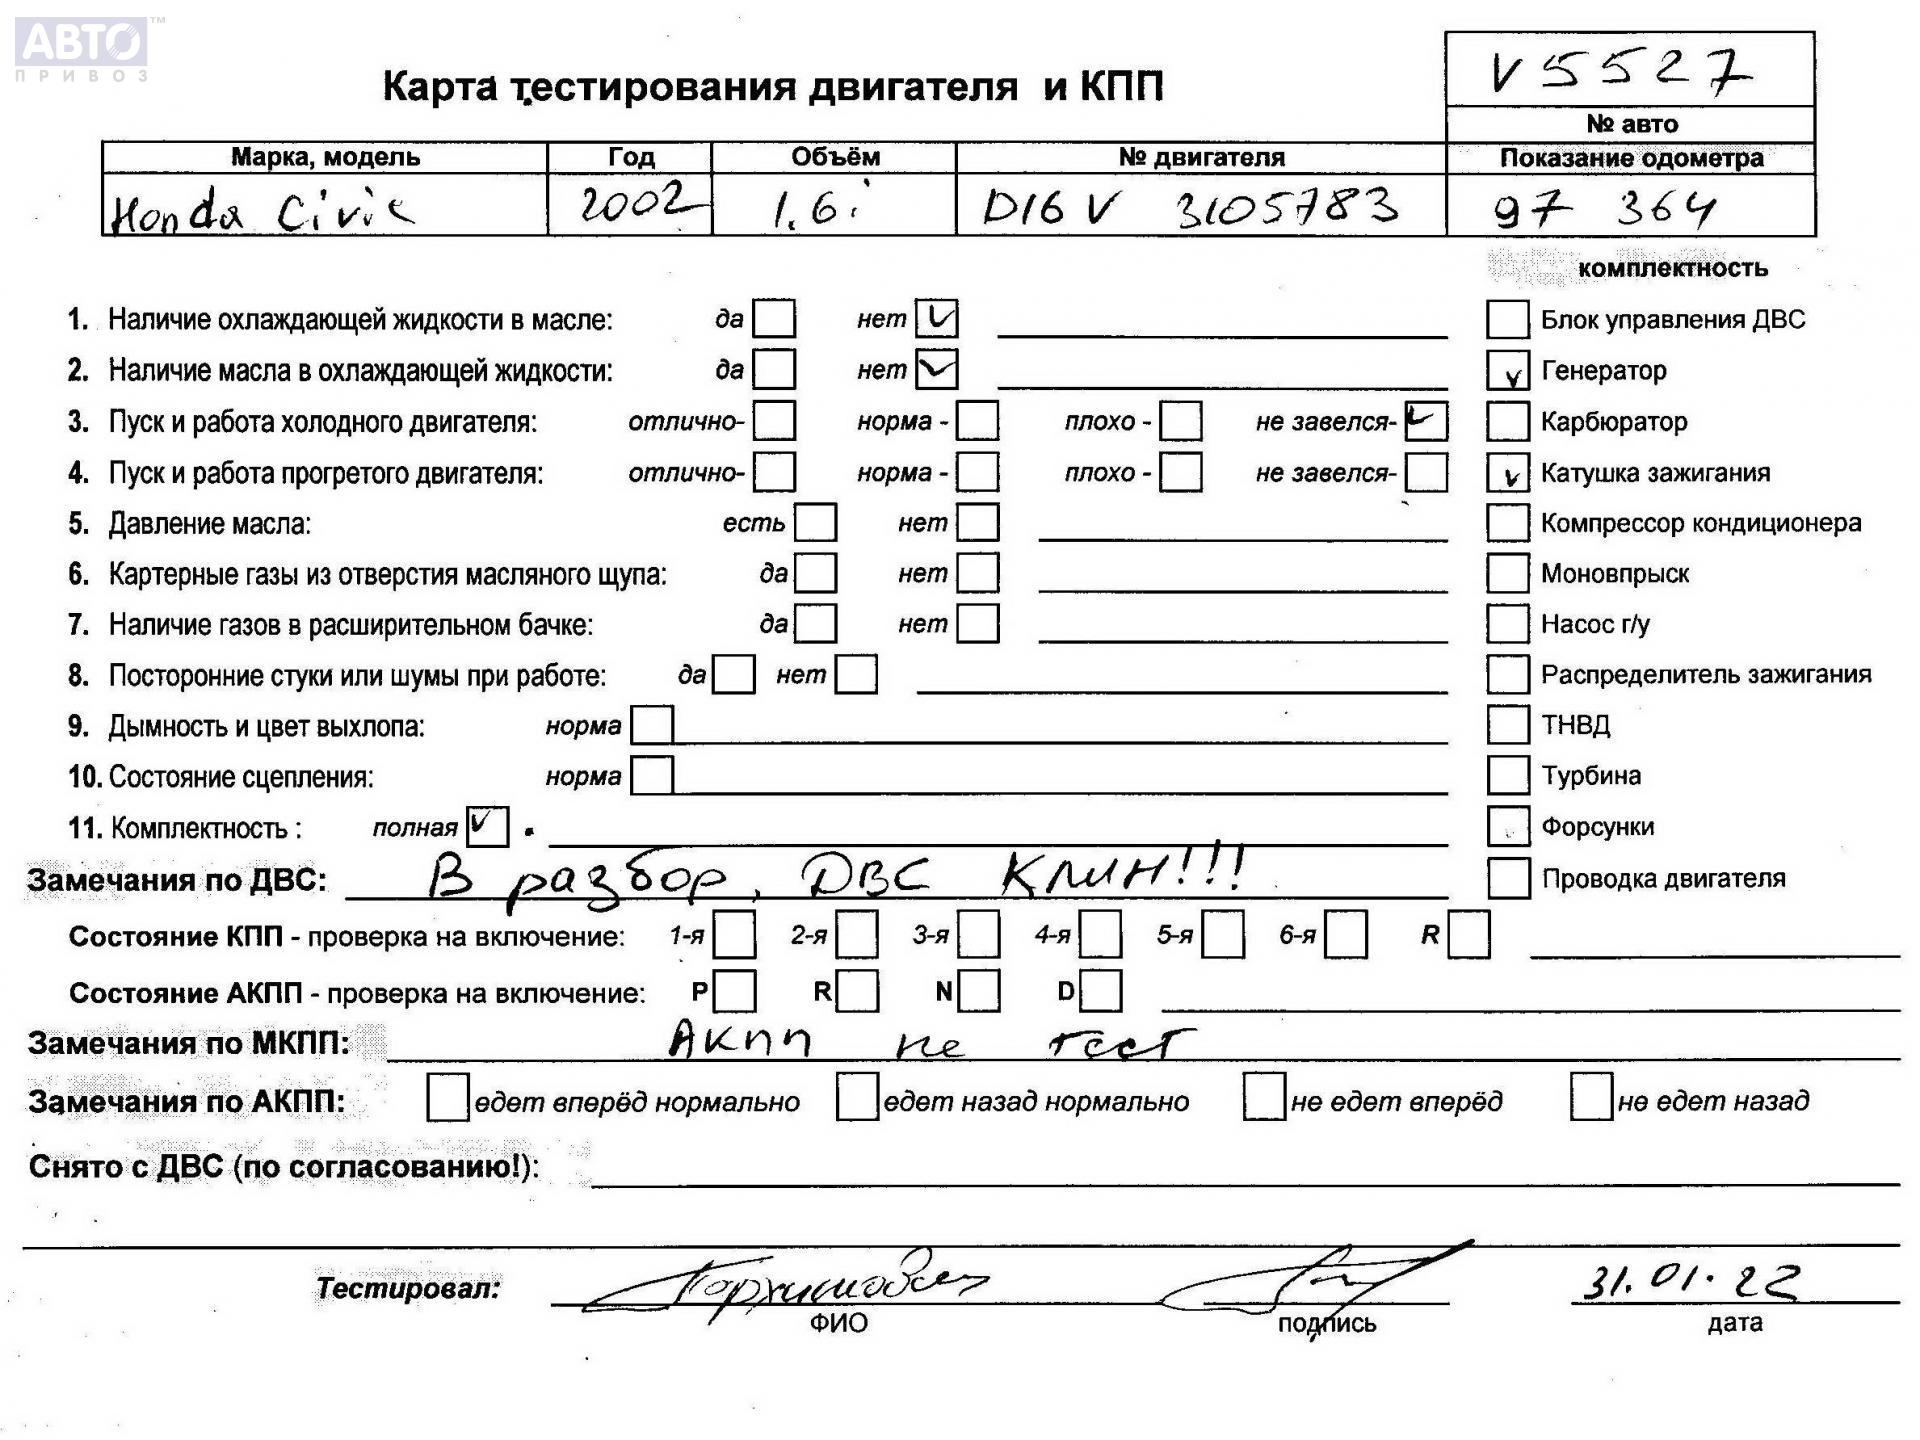 АВТО™
ПРИВОЗ
V5527
Карта тестирования двигателя и КПП
№ авто
Марка, модель Год Объём № двигателя Показание одометра
Honda Civic 2002 1.6i D16V 3105783 97 364
комплектность
1. Наличие охлаждающей жидкости в масле: да нет Блок управления ДВС
2. Наличие масла в охлаждающей жидкости: да нет Генератор
3. Пуск и работа холодного двигателя: отлично- норма - плохо - не завелся- Карбюратор
4. Пуск и работа прогретого двигателя: отлично- норма - плохо - не завелся- Катушка зажигания
5. Давление масла: есть нет Компрессор кондиционера
6. Картерные газы из отверстия масляного щупа: да нет Моновпрыск
7. Наличие газов в расширительном бачке: да нет Насос г/у
8. Посторонние стуки или шумы при работе: да нет Распределитель зажигания
9. Дымность и цвет выхлопа: норма ТНВД
10. Состояние сцепления: норма Турбина
11. Комплектность : полная Форсунки
Замечания по ДВС: В разбор, ДВС Клин!!! Проводка двигателя
Состояние КПП - проверка на включение: 1-я 2-я 3-я 4-я 5-я 6-я R
Состояние АКПП - проверка на включение: P R N D
Замечания по МКПП: АКПП не тест
Замечания по АКПП: едет вперёд нормально едет назад нормально не едет вперёд не едет назад
Снято с ДВС (по согласованию!):
Тестировал: 31.01.22
ФИО подпись дата